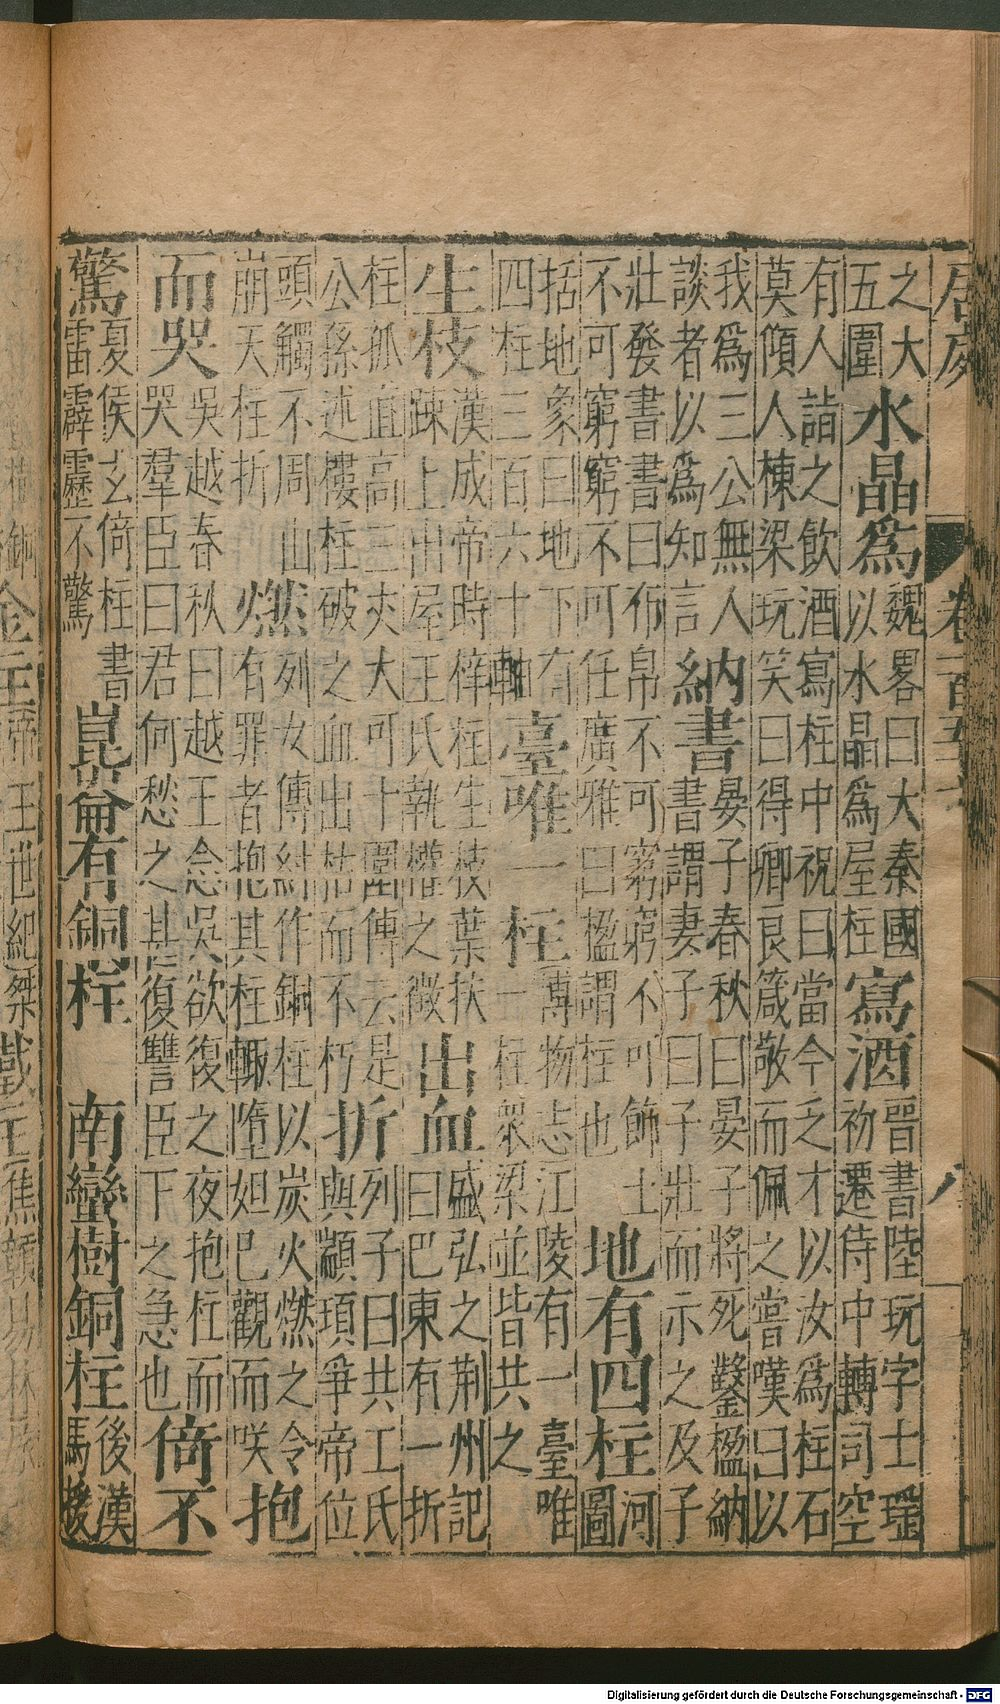 居處 卷一百五十 八
之大五圍水晶爲魏畧曰大秦國以水晶爲屋柱寫酒晉書陸玩字士瑶初遷侍中轉司空
有人詣之飲酒寫柱中祝曰當今乏才以汝爲柱石莫傾人棟梁玩笑曰得卿良箴敬而佩之嘗嘆曰以
我爲三公無人談者以爲知言納書晏子春秋曰晏子將死鑿楹納書謂妻子曰子壯而示之及子
壯發書書曰布帛不可窮窮不可飾士不可窮窮不可任廣雅曰楹謂柱也地有四柱河圖
括地象曰地下有四柱三百六十軸臺唯一柱博物志江陵有一臺唯一柱衆梁並皆共之
生枝漢成帝時梓柱生枝葉扶踈上出屋王氏執權之徵出血盛弘之荆州記曰巴東有一折
柱孤直高三丈大可十圍傳云是公孫述樓柱破之血出枯而不朽折列子曰共工氏與顓頊爭帝位
頭觸不周山崩天柱折燃列女傳紂作銅柱以炭火燃之令有罪者抱其柱輙墮妲己觀而咲抱
而哭吳越春秋曰越王念吳欲復之夜抱柱而哭羣臣曰君何愁之甚復讐臣下之急也倚不
驚夏侯玄倚柱書雷霹靂不驚崑崙有銅柱南蠻樹銅柱後漢馬援
帝王世紀桀 焦贛易林
Digitalisierung gefördert durch die Deutsche Forschungsgemeinschaft - DFG